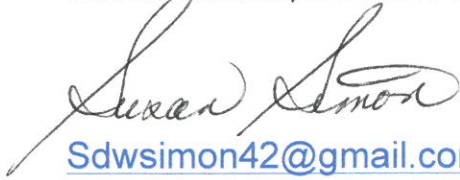 Susan Simon
Sdwsimon42@gmail.co